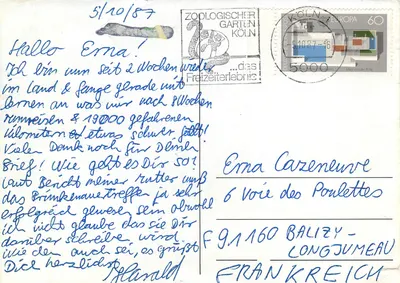 5/10/87
Hallo Erna!
Ich bin nun seit 2 Wochen wieder
im Land & fange gerade mit
lernen an was mir nach 8 Wochen
rumreisen & 19000 gefahrenen
Kilometern etwas schwer fällt!
Vielen Dank noch für Deinen
Brief! Wie geht es Dir so?
Laut Bericht meiner Mutter muß
das treffen ja sehr
erfolgreich gewesen sein obwohl
ich nicht glaube das sie Dir
darüber schreiben wird.
Wie dem auch sei, es grüßt
Dich herzlichst
Harald
ZOOLOGISCHER
GARTEN
KÖLN
...das
Freizeiterlebnis
KÖLN 1
5000
EUROPA
60
Erna Cazeneuve
6 Voie des Poulettes
F 91160 BALIZY-
LONGJUMEAU
FRANKREICH